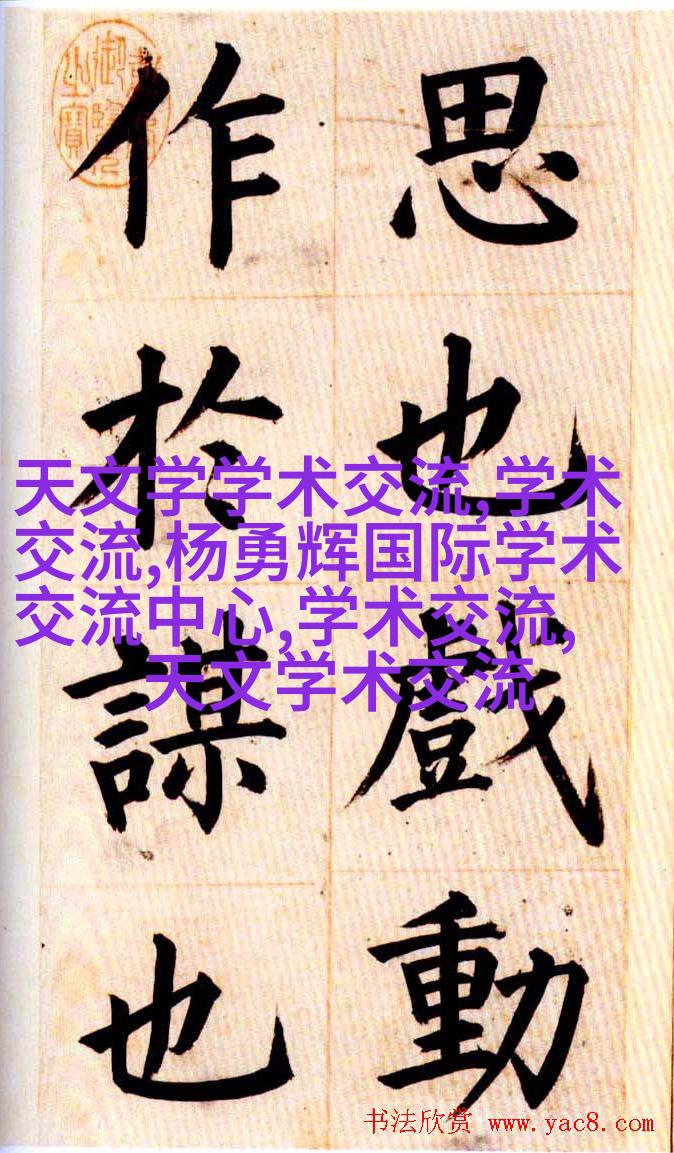 思也戲動
作於謀也
天文学学术交流,学术
交流,杨勇辉国际学术
交流中心,学术交流,
天文学术交流
书法欣赏 www.yac8.com